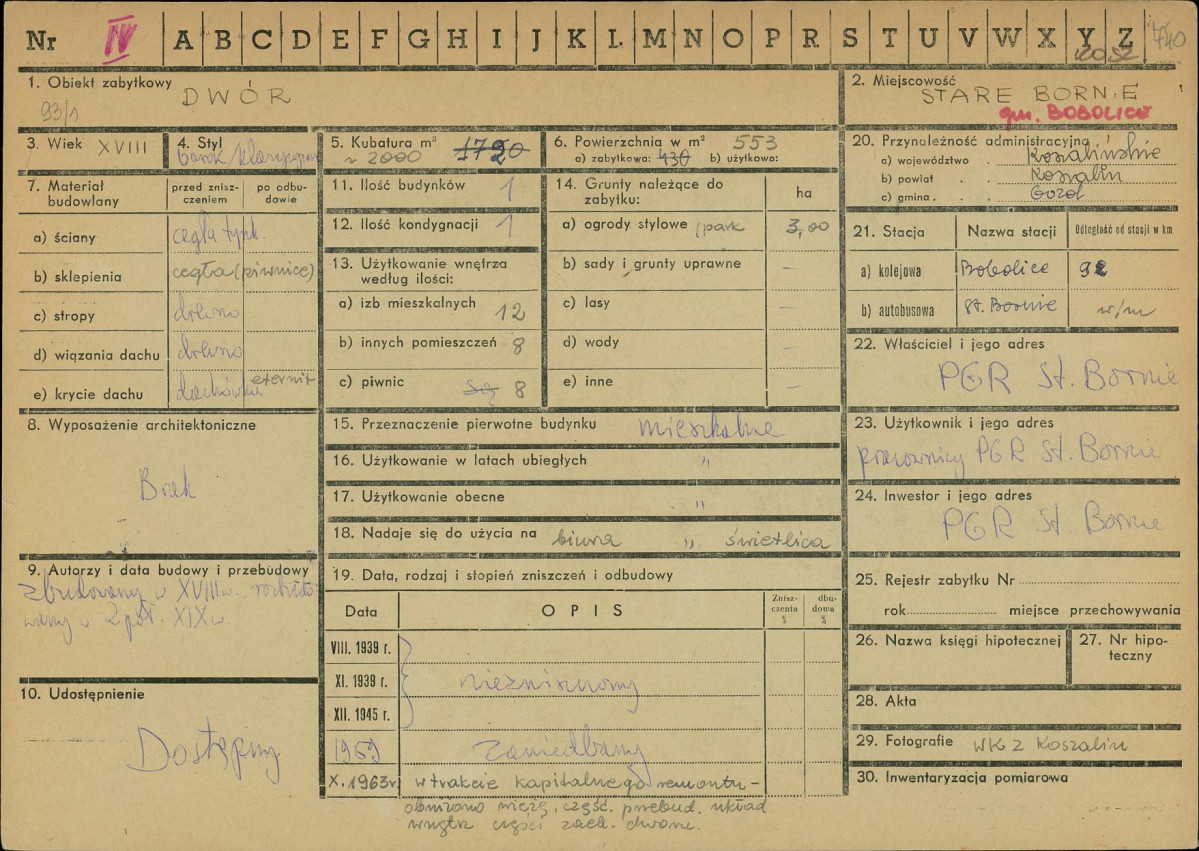 Nr IV A B C D E F G H I J K L M N O P R S T U V W X Y Z
1. Obiekt zabytkowy DWÓR
93/1
2. Miejscowość
STARE BORNE
gm. BOBOLICE
3. Wiek XVIII
4. Styl
barok
5. Kubatura m³
~ 2000 1720
6. Powierzchnia w m² 553
a) zabytkowa: 430 b) użytkowa:
20. Przynależność administracyjna
a) województwo . Koszalińskie
b) powiat . . Koszalin
c) gmina . . .
7. Materiał budowlany
przed zniszczeniem
po odbudowie
a) ściany cegła tynk.
b) sklepienia cegła (piwnice)
c) stropy drewno
d) wiązania dachu drewno
e) krycie dachu dachówka eternit
11. Ilość budynków 1
12. Ilość kondygnacji 1
13. Użytkowanie wnętrza
według ilości:
a) izb mieszkalnych 12
b) innych pomieszczeń 8
c) piwnic są 8
14. Grunty należące do
zabytku:
ha
a) ogrody stylowe /park 3,00
b) sady i grunty uprawne –
c) lasy –
d) wody –
e) inne –
21. Stacja Nazwa stacji Odległość od stacji w km
a) kolejowa Bobolice
b) autobusowa St. Bornie w/m
22. Właściciel i jego adres
PGR St. Bornie
8. Wyposażenie architektoniczne
Brak
15. Przeznaczenie pierwotne budynku mieszkalne
16. Użytkowanie w latach ubiegłych "
17. Użytkowanie obecne "
18. Nadaje się do użycia na biura " świetlica
23. Użytkownik i jego adres
pracownicy PGR St. Bornie
24. Inwestor i jego adres
PGR St. Bornie
9. Autorzy i data budowy i przebudowy
Zbudowany w XVIII w. rozbudo
wany w 2 poł. XIX w.
10. Udostępnienie
Dostępny
19. Data, rodzaj i stopień zniszczeń i odbudowy
Data OPIS Zniszczenia % dbudowa %
VIII. 1939 r.
XI. 1939 r. niezniszczony
XII. 1945 r.
1959 zaniedbany
X. 1963 r w trakcie kapitalnego remontu –
obniżono wieżę, częśc. przebud. układ
wnętrz części zach. dworu.
25. Rejestr zabytku Nr
rok miejsce przechowywania
26. Nazwa księgi hipotecznej
27. Nr hipoteczny
28. Akta
29. Fotografie WKZ Koszalin
30. Inwentaryzacja pomiarowa